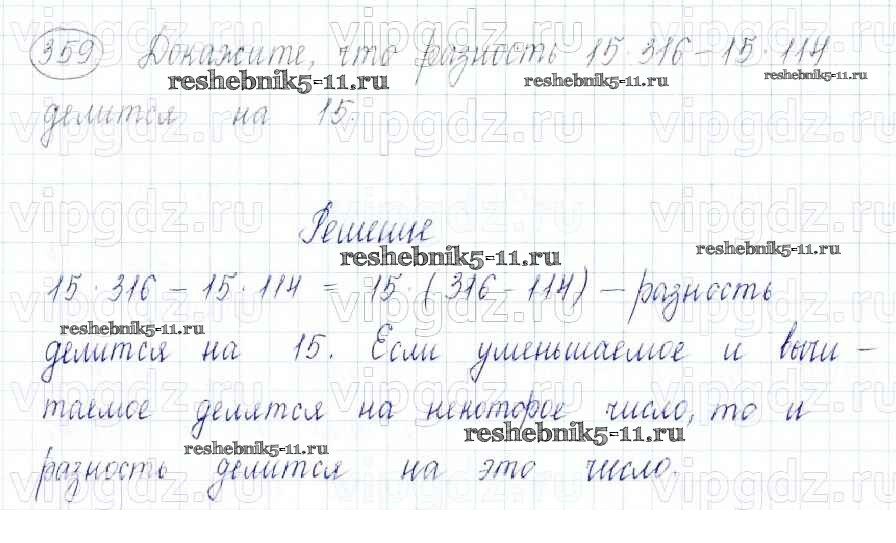 359 Докажите, что разность 15·316-15·114
reshebnik5-11.ru reshebnik5-11.ru reshebnik5-11.ru
делится на 15.
vipgdz.ru vipgdz.ru vipgdz.ru
Решение
reshebnik5-11.ru reshebnik5-11.ru
15·316-15·114 = 15·(316-114) — разность
reshebnik5-11.ru
делится на 15. Если уменьшаемое и вычи-
таемое делятся на некоторое число, то и
reshebnik5-11.ru reshebnik5-11.ru
разность делится на это число.